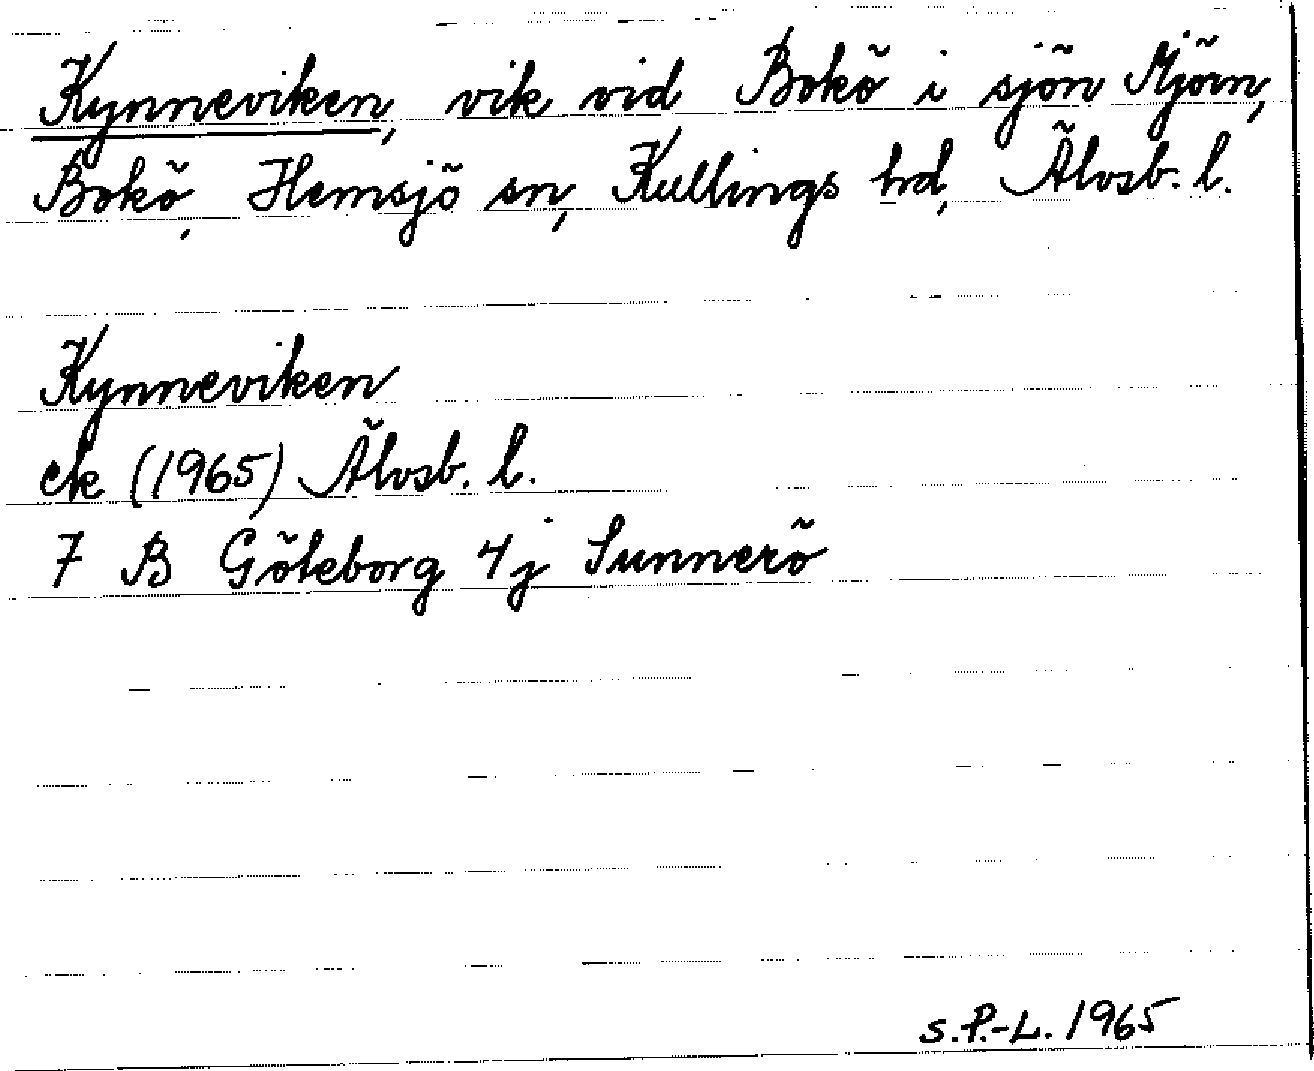 Kynneviken, vik vid Bokö i sjön Mjörn,
Bokö, Hemsjö sn, Kullings hd, Älvsb. l.
Kynneviken
ek (1965) Älvsb. l.
7 B Göteborg 4j Sunnerö
S.P.-L. 1965